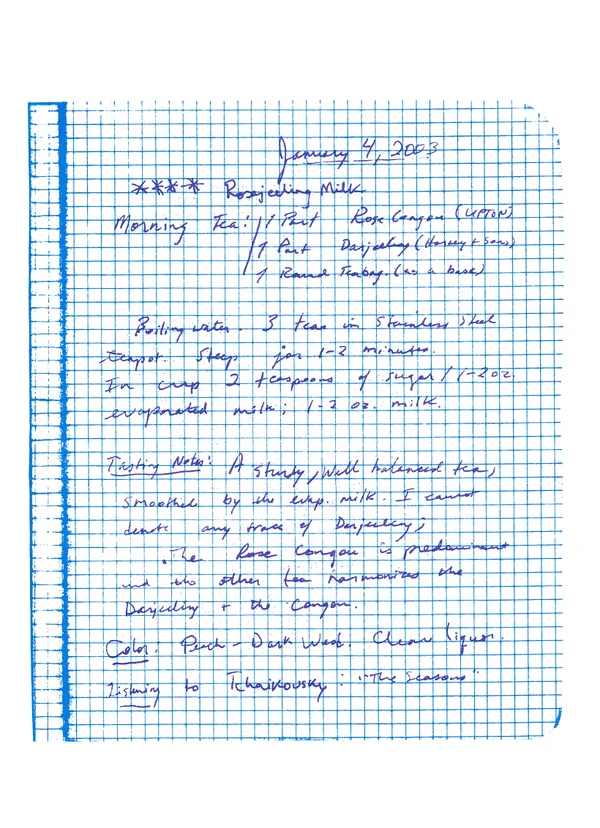 January 4, 2003
**** Rosejeeling Milk
Morning Tea: 1 Part Rose Congou (UPTON)
1 Part Darjeeling (Harney + Sons)
1 Round Teabag. (as a base)
Boiling water. 3 teas in Stainless Steel
teapot. Steep for 1-2 minutes.
In cup 2 teaspoons of sugar / 1-2 oz.
evaporated milk; 1-2 oz. milk.
Tasting Notes: A sturdy, well balanced tea,
smoothed by the evap. milk. I cannot
denote any trace of Darjeeling;
The Rose Congou is predominant
and the other tea harmonizes the
Darjeeling + the Congou.
Color: Peach - Dark Wood. Clear liquor.
Listening to Tchaikovsky: "The Seasons"